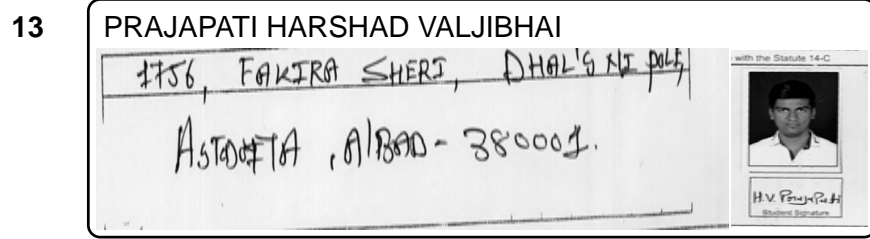 13
PRAJAPATI HARSHAD VALJIBHAI
1756, FAKIRA SHERI, DHAL'S NI POLE,
ASTODIYA, A/BAD - 380001.
with the Statute 14-C
H.V. Prajapati
Student Signature